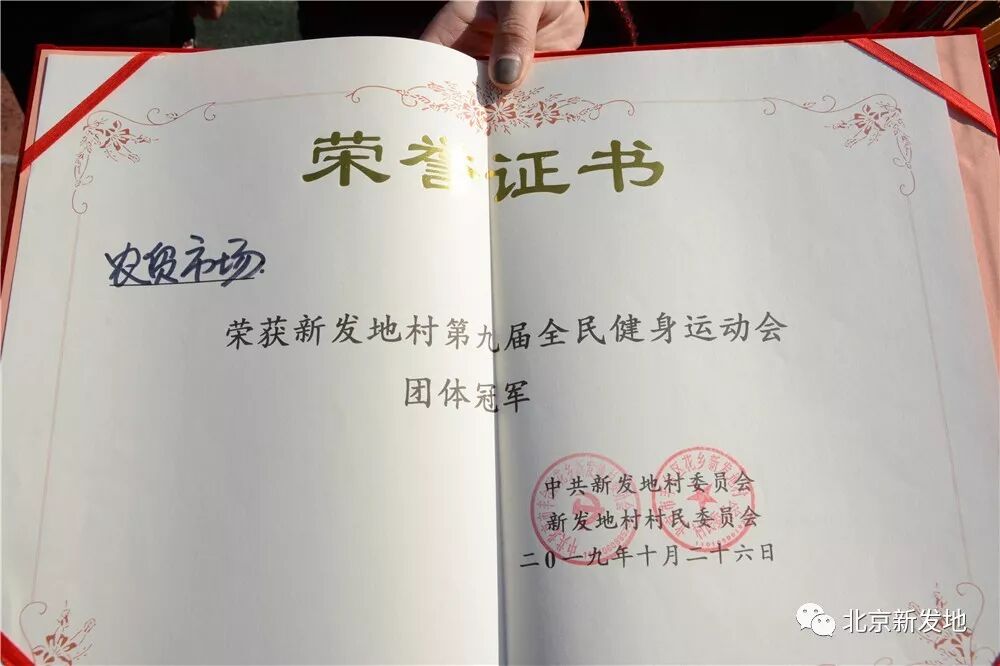 荣誉证书
农贸市场
荣获新发地村第九届全民健身运动会
团体冠军
中共新发地村委员会
新发地村村民委员会
二0一九年十月二十六日
北京新发地